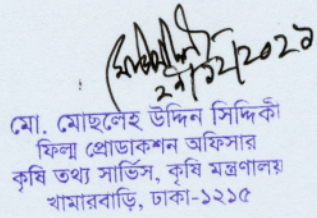 ২৭/১২/২০২১
মো. মোছলেহ উদ্দিন সিদ্দিকী
ফিল্ম প্রোডাকশন অফিসার
কৃষি তথ্য সার্ভিস, কৃষি মন্ত্রণালয়
খামারবাড়ি, ঢাকা-১২১৫